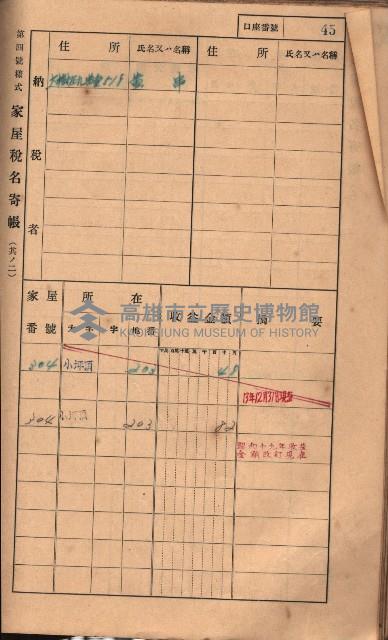 口座番號 45
第四號樣式 家屋稅名寄帳(其ノ二)
住所 氏名又ハ名稱 住所 氏名又ハ名稱
納稅者
家屋番號 所在 收益金額 摘要
大字 字 地番
高雄市立歷史博物館
KAOHSIUNG MUSEUM OF HISTORY
204 小坪頂 203 48
13年12月31日現在
204 小坪頂 203 82
昭和十九年收益
金額改訂現在